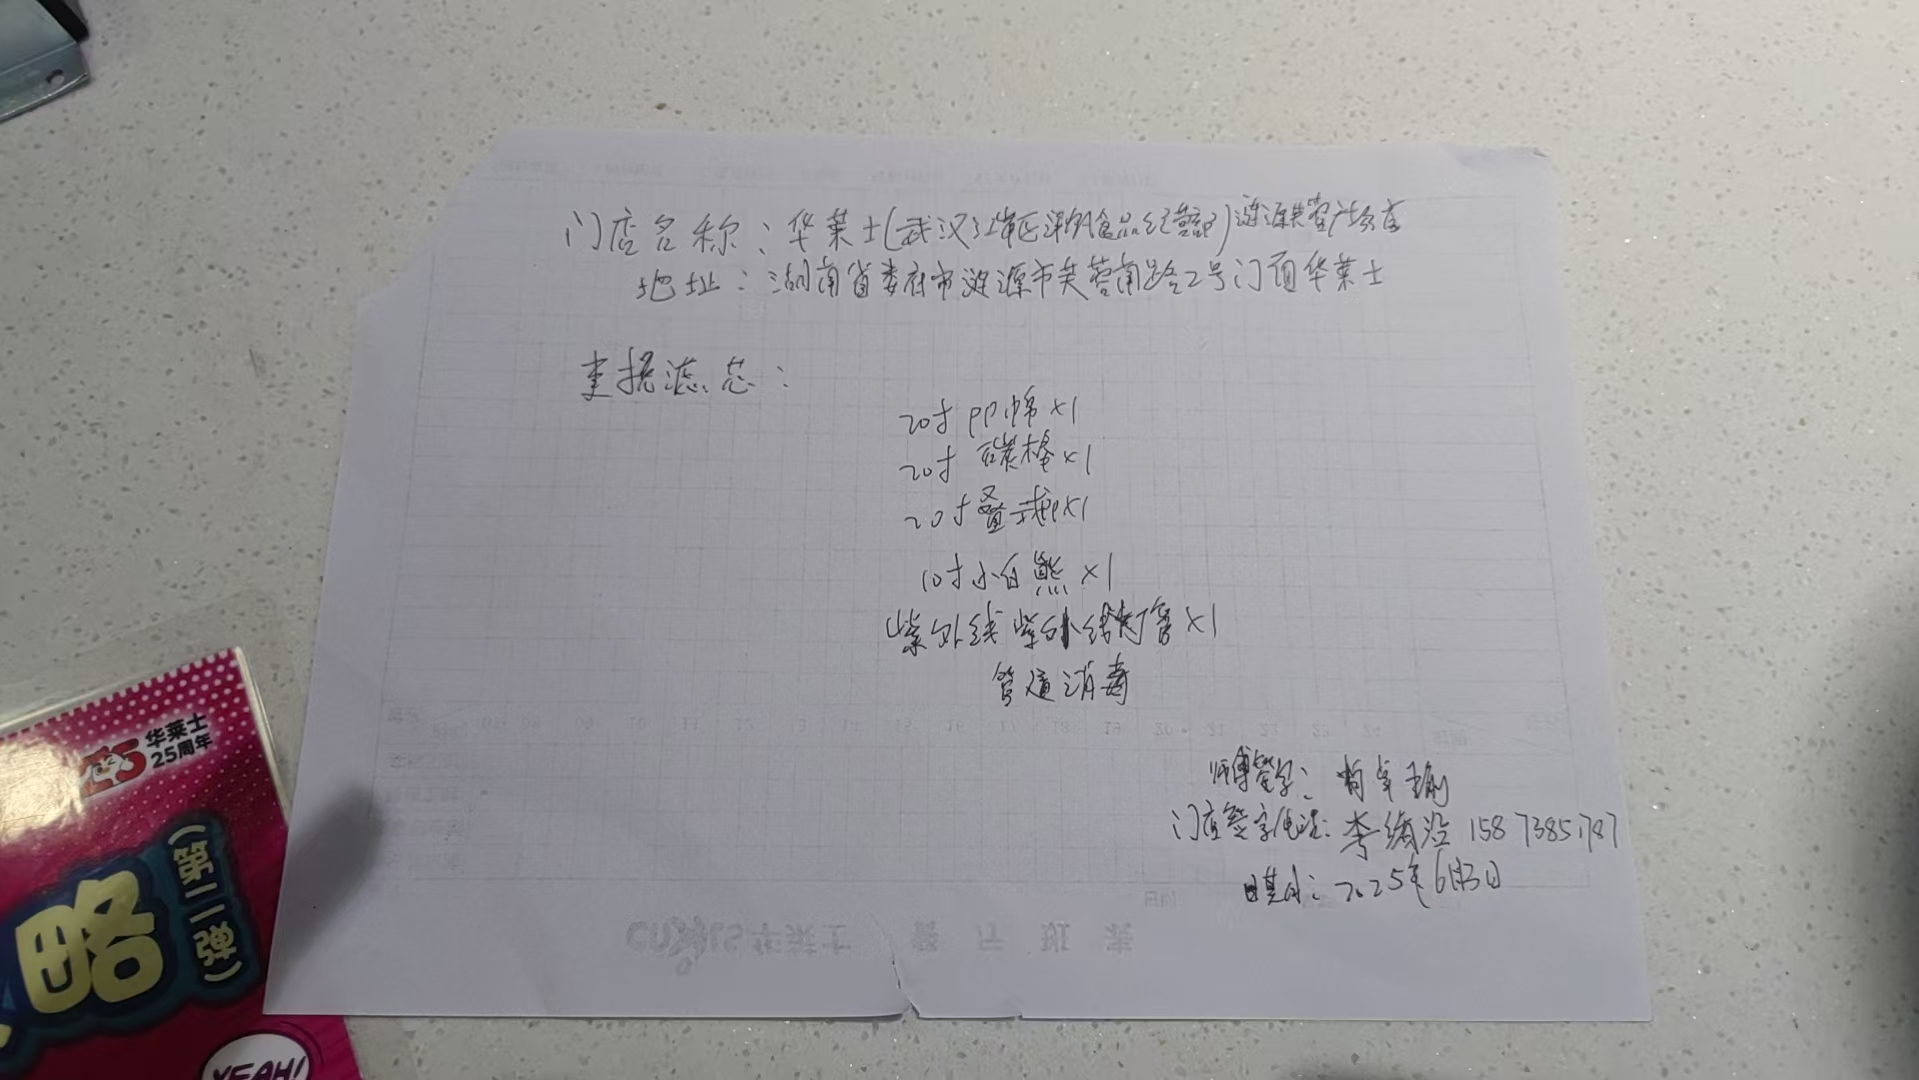 门店名称：华莱士(武汉江岸区泽钒食品经营部)涟源共富广场店
地址：湖南省娄底市涟源市芙蓉南路2号门面华莱士
更换滤芯：
20寸 PP棉 x1
20寸 碳棒 x1
20寸叠式PPx1
10寸小白熊 x1
紫外线紫外线灯管 x1
管道消毒
师傅签字：肖卓
门店签字/电话：李 15873851787
日期：2025年6月3日
华莱士
25周年
略
(第二弹)
YEAH!
华莱士 餐厅班表